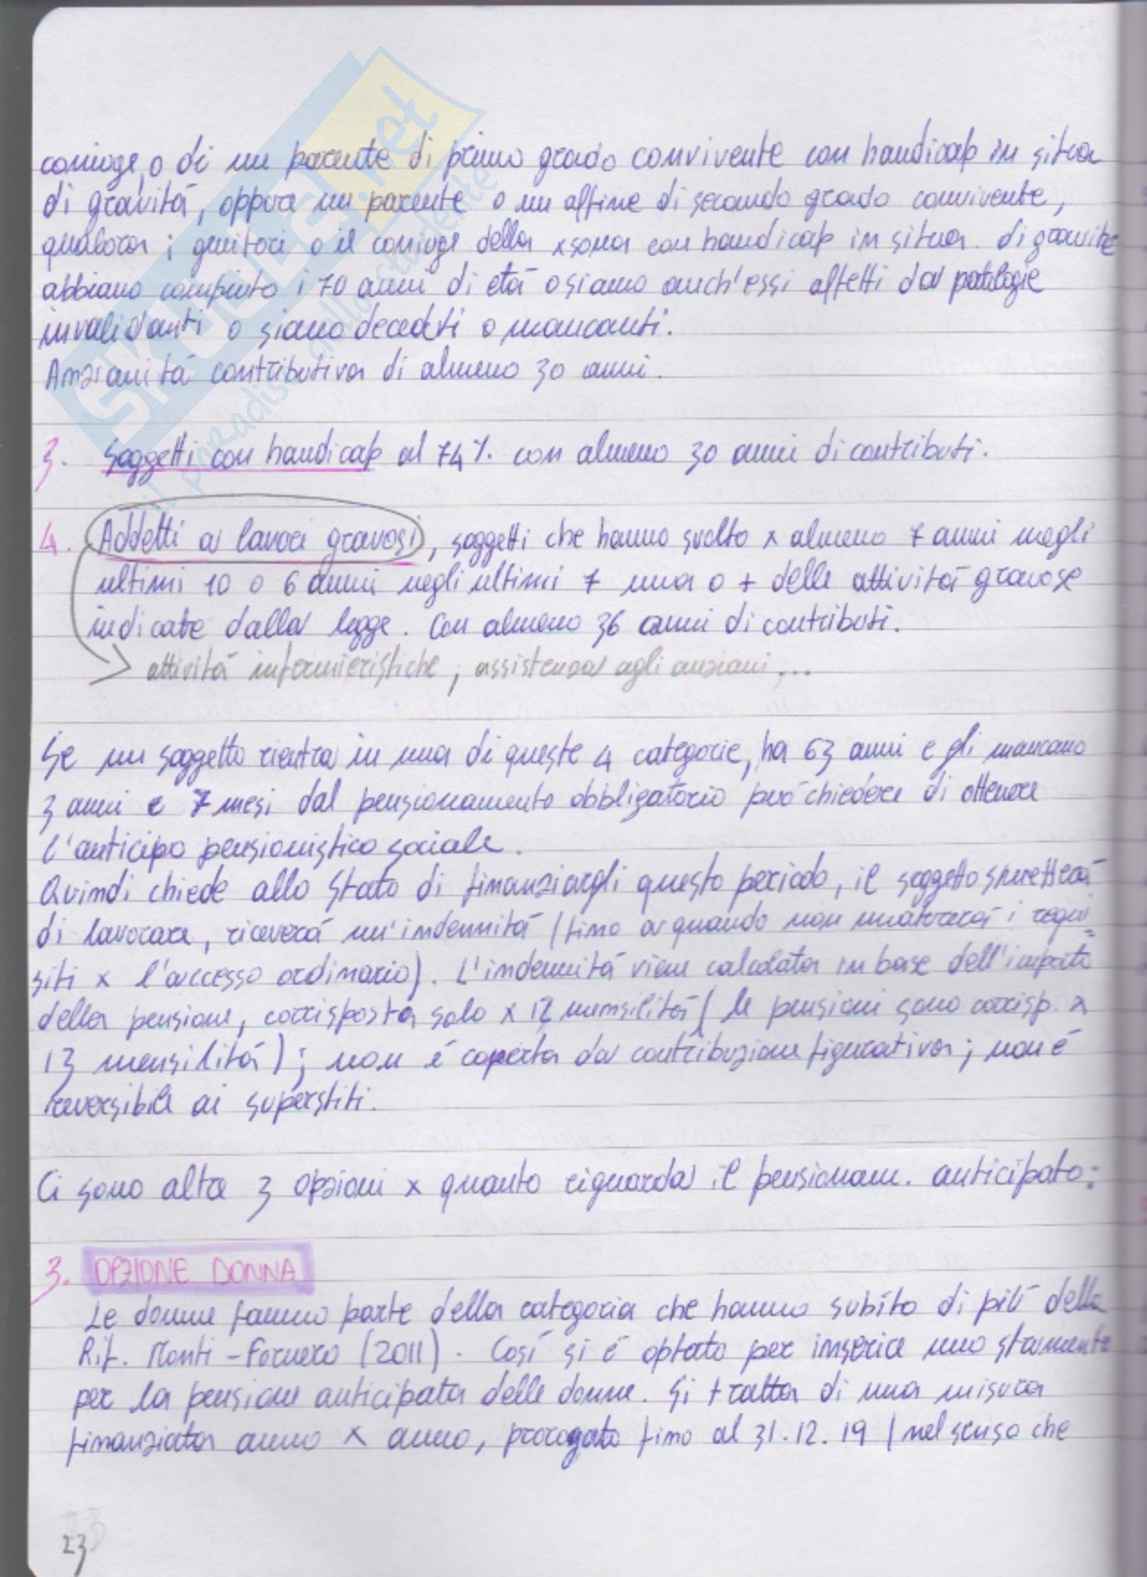 coniuge, o di un parente di primo grado convivente con handicap in situa
di gravità, oppure un parente o un affine di secondo grado convivente,
qualora i genitori o il coniuge della xsona con handicap in situa. di gravità
abbiano compiuto i 70 anni di età o siano anch'essi affetti da patologie
invalidanti o siano deceduti o mancanti.
Anzianità contributiva di almeno 30 anni.
3. Soggetti con handicap al 74%. con almeno 30 anni di contributi.
4. Addetti a lavori gravosi, soggetti che hanno svolto x almeno 7 anni negli
ultimi 10 o 6 anni negli ultimi 7 una o + delle attività gravose
indicate dalla legge. Con almeno 36 anni di contributi.
attività infermieristiche, assistenza agli anziani,...
Se un soggetto rientra in una di queste 4 categorie, ha 63 anni e gli mancano
3 anni e 7 mesi dal pensionamento obbligatorio può chiedere di ottenere
l'anticipo pensionistico sociale.
Quindi chiede allo Stato di finanziargli questo periodo, il soggetto smetterà
di lavorare, riceverà un'indennità (fino a quando non maturerà i requi
siti x l'accesso ordinario). L'indennità viene calcolata in base dell'importo
della pensione, corrisposta solo x 12 mensilità (le pensioni sono corrisp. x
13 mensilità); non è coperta da contribuzione figurativa; non è
reversibile ai superstiti.
Ci sono altre 3 opzioni x quanto riguarda il pensionam. anticipato:
3. OPZIONE DONNA
Le donne fanno parte della categoria che hanno subìto di più della
Rif. Monti-Fornero (2011). Così si è optato per inserire uno strumento
per la pensione anticipata delle donne. Si tratta di una misura
finanziata anno x anno, prorogato fino al 31.12.19 (nel senso che
23
SKUOLA.net